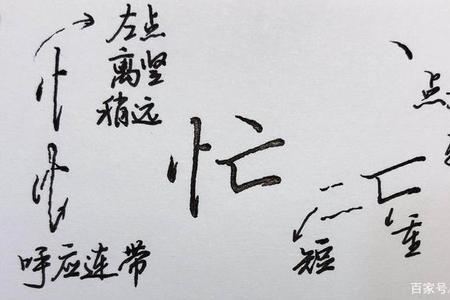 左点
离竖
稍远
忙
呼应连带
短
点
百家号